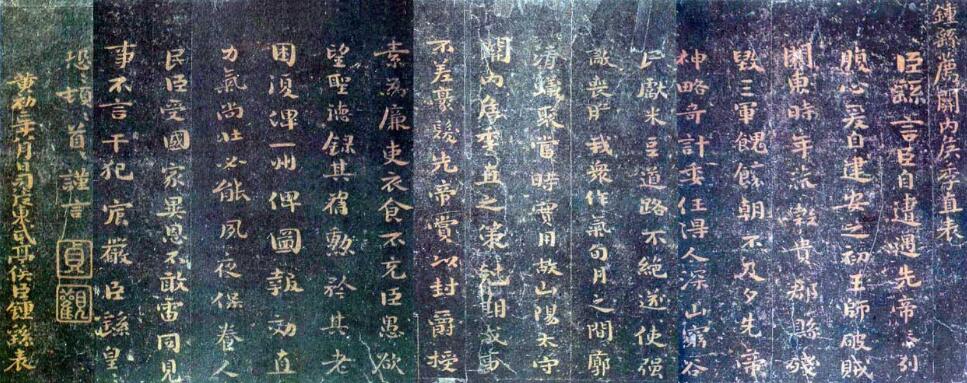 鍾繇薦關内侯季直表
臣繇言臣自遭遇先帝忝列
腹心爰自建安之初王師破賊
關東時年荒穀貴郡縣殘
毀三軍餽饟朝不及夕先帝
神略奇計委任得人深山窮谷
民獻米豆道路不絕遂使強
敵喪膽我衆作氣旬月之間廓
清蟻聚當時實用故山陽太守
關内侯季直之策尅期成事
不差豪髮先帝賞以封爵授
素為廉吏衣食不充臣愚欲
望聖德錄其舊勳矜其老
困復俾一州俾圖報効直
力氣尚壯必能夙夜保養人
民臣受國家異恩不敢雷同見
事不言干犯宸嚴臣繇皇
恐頓首謹言
貞觀
黃初二年八月日司徒東武亭侯臣鍾繇表